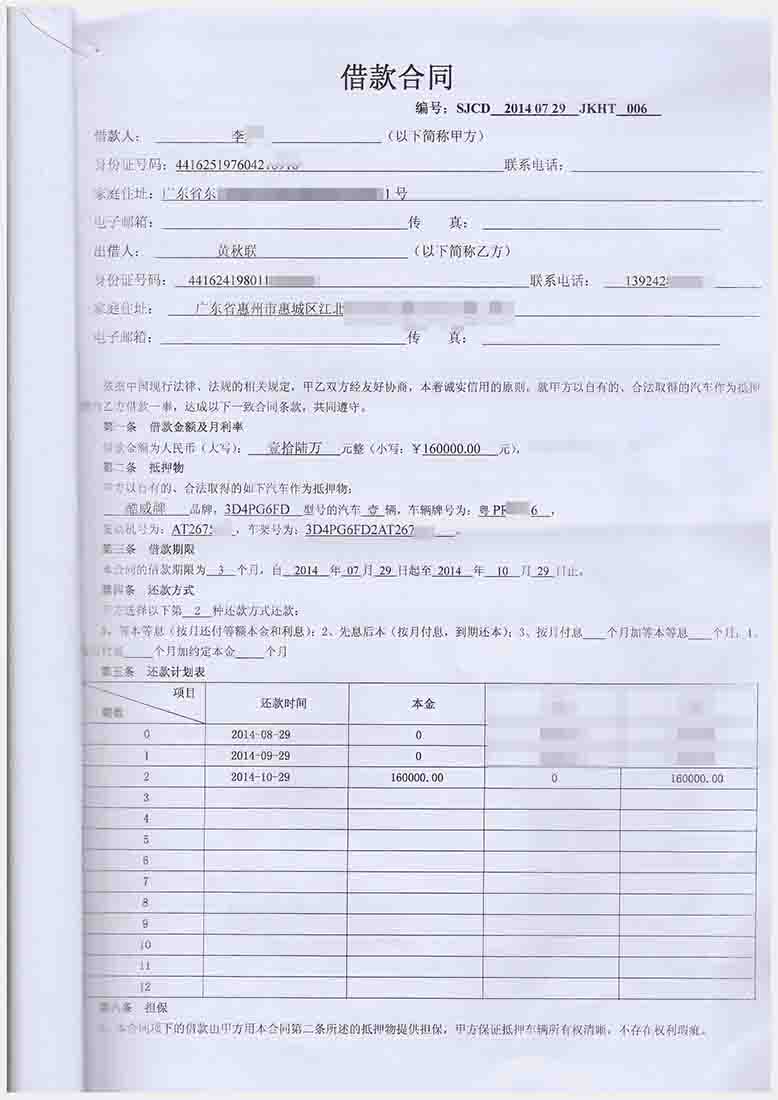 借款合同
编号：SJCD 2014 07 29 JKHT 006
借款人： 李 （以下简称甲方）
身份证号码：4416251976042 联系电话：
家庭住址：广东省东 1号
电子邮箱： 传 真：
出借人： 黄秋联 （以下简称乙方）
身份证号码： 441624198011 联系电话： 139242
家庭住址： 广东省惠州市惠城区江北
电子邮箱： 传 真：
依据中国现行法律、法规的相关规定，甲乙双方经友好协商，本着诚实信用的原则，就甲方以自有的、合法取得的汽车作为抵押
乙方借款一事，达成以下一致合同条款，共同遵守。
第一条 借款金额及月利率
借款金额为人民币（大写）： 壹拾陆万 元整（小写：￥160000.00 元），
第二条 抵押物
甲方以自有的、合法取得的如下汽车作为抵押物：
酷威牌 品牌，3D4PG6FD 型号的汽车 壹 辆，车辆牌号为：粤PF 6 ，
发动机号为：AT267 ，车架号为：3D4PG6FD2AT267 。
第三条 借款期限
本合同的借款期限为 3 个月，自 2014 年 07 月 29 日起至 2014 年 10 月 29 日止。
第四条 还款方式
甲方选择以下第 2 种还款方式还款：
1、等本等息（按月还付等额本金和利息）；2、先息后本（按月付息，到期还本）；3、按月付息 个月加等本等息 个月；4、
个月加约定本金 个月
第五条 还款计划表
项目 还款时间 本金
期数
0 2014-08-29 0
1 2014-09-29 0
2 2014-10-29 160000.00 0 160000.00
3
4
5
6
7
8
9
10
11
12
第六条 担保
本合同项下的借款由甲方用本合同第二条所述的抵押物提供担保，甲方保证抵押车辆所有权清晰，不存在权利瑕疵。